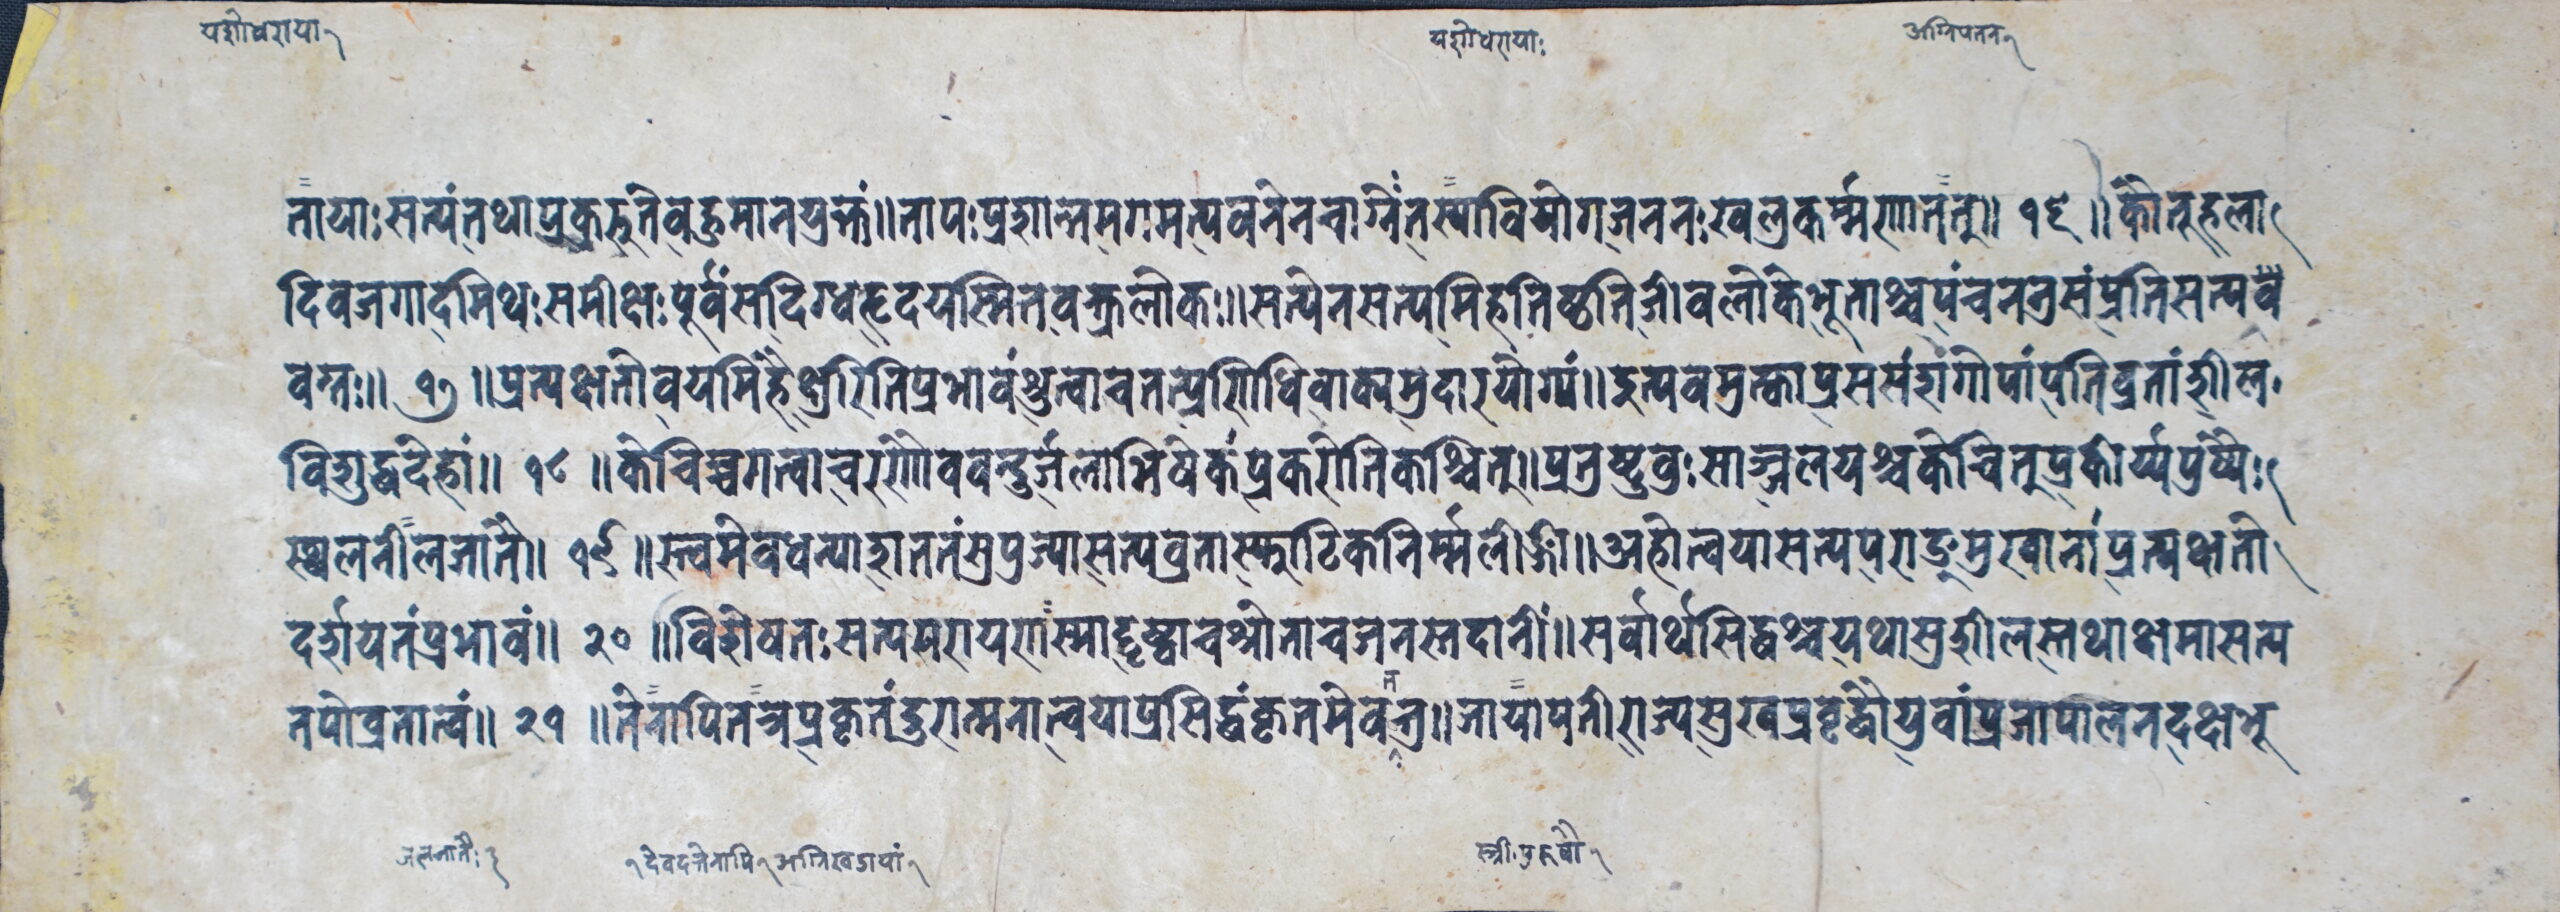 यशोधराया
यशोधरायाः
अग्निपतन
तायाः सत्यं तथा प्रकुरुते वहुमानयुक्तं॥ तापः प्रशान्तमगमत्यवनेन चाग्निं तस्या वियोगजननः खलु कर्म्मणानेतु॥ १६ ॥ कौतूहला
दिव जगाद मिथः समीक्षः पूर्वं सदिग्धहृदयस्मितवक्त्रलोकः॥ सत्येन सत्यमिह तिष्ठति जीवलोके भूताश्च पंच ननु संप्रति सत्यवै
वक्तः॥ १७ ॥ प्रत्यक्षतो वयमिहैक्षुरिति प्रभावं श्रुत्वा च तत्प्रणिधिवाक्यमुदारयोग्यं॥ इत्यवमुक्त्वा प्रससंश गोपां पतिव्रतां शील
विशुद्धदेहां॥ १८ ॥ केचिच्च गत्वा चरणौ ववन्दुर्जलाभिषेकं प्रकरोति कश्चित्॥ प्रतुष्टुवुः साञ्जलयश्च केचित् प्रकीर्य्य पुष्पैः
स्थलनीलजातै॥ १९ ॥ त्वमेव धन्या शाततं सुपुज्या सत्यव्रता स्फाटिकनिर्म्मलाङ्गी॥ अहो त्वया सत्यपराङ्मुखानां प्रत्यक्षतो
दर्शयतं प्रभावं॥ २० ॥ विशेषतः सत्यपरायणां स्मा दृष्ट्वा च श्रोता च जनस्तदानीं॥ सर्वार्थसिद्धश्च यथा सुशीलस्तथा क्षमासत्य
तपोव्रता त्वं॥ २१ ॥ तेनापि तन्न प्रकृतं दुरात्मना त्वया प्रसिद्धं कृतमेव तत्रु॥ जायापती राज्यसुखप्रवृद्धौ युवां प्रजापालनदक्षभू
जलजातैः
देवदत्तेनापि
स्त्रीपुरुषौ